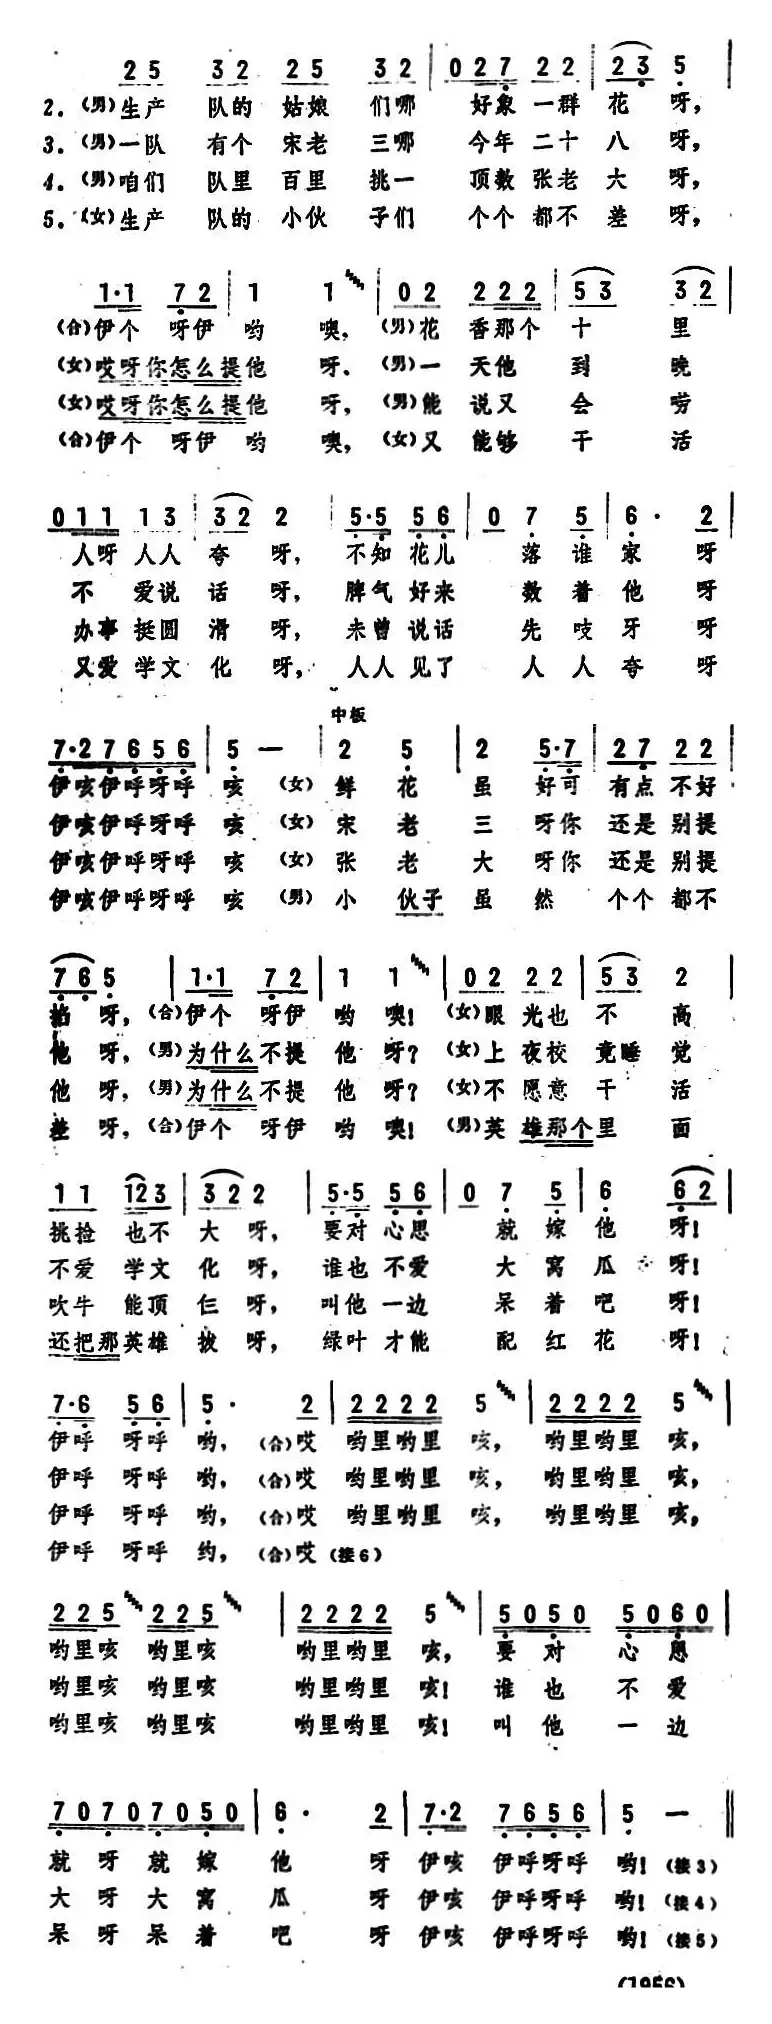 2 5 3 2 2 5 3 2 | 0 2 7 2 2 | 2 3 5 |
2.(男)生产 队的 姑娘 们哪 好象 一群 花 呀,
3.(男)一队 有个 宋老 三哪 今年 二十 八 呀,
4.(男)咱们 队里 百里 挑一 顶数 张老 大 呀,
5.(女)生产 队的 小伙 子们 个个 都不 差 呀,
1·1 7 2 | 1 1 | 0 2 2 2 2 | 5 3 3 2 |
(合)伊个 呀伊 哟 噢,(男)花 香那个 十 里
(女)哎呀你怎么提他 呀、(男)一 天他 到 晚
(女)哎呀你怎么提他 呀,(男)能 说又 会 唠
(合)伊个 呀伊 哟 噢,(女)又 能够 干 活
0 1 1 1 3 | 3 2 2 | 5·5 5 6 | 0 7 5 | 6· 2 |
人呀 人人 夸 呀, 不知 花儿 落 谁 家 呀
不 爱说 话 呀, 脾气 好来 数 着 他 呀
办事 挺圆 滑 呀, 未曾 说话 先 吱 牙 呀
又爱 学文 化 呀, 人人 见了 人 人 夸 呀
中板
7·2 7 6 5 6 | 5 — | 2 5 | 2 5·7 | 2 7 2 2 |
伊咳伊呼呀呼 咳 (女)鲜 花 虽 好可 有点 不好
伊咳伊呼呀呼 咳 (女)宋 老 三 呀你 还是 别提
伊咳伊呼呀呼 咳 (女)张 老 大 呀你 还是 别提
伊咳伊呼呀呼 咳 (男)小 伙子 虽 然 个个 都不
7 6 5 | 1·1 7 2 | 1 1 | 0 2 2 2 | 5 3 2 |
掐 呀,(合)伊个 呀伊 哟 噢!(女)眼 光也 不 高
他 呀,(男)为什么不提 他 呀?(女)上 夜校 竟睡 觉
他 呀,(男)为什么不提 他 呀?(女)不 愿意 干 活
差 呀,(合)伊个 呀伊 哟 噢!(男)英雄那个里 面
1 1 1 2 3 | 3 2 2 2 | 5·5 5 6 | 0 7 5 | 6 6 2 |
挑捡 也不 大 呀, 要对 心思 就 嫁 他 呀!
不爱 学文 化 呀, 谁也 不爱 大 窝 瓜 呀!
吹牛 能顶 仨 呀, 叫他 一边 呆 着 吧 呀!
还把那英雄 拔 呀, 绿叶 才能 配 红 花 呀!
7·6 5 6 | 5· 2 | 2 2 2 2 5 | 2 2 2 2 5 |
伊呼 呀呼 哟,(合)哎 哟里哟里 咳, 哟里哟里 咳,
伊呼 呀呼 哟,(合)哎 哟里哟里 咳, 哟里哟里 咳,
伊呼 呀呼 哟,(合)哎 哟里哟里 咳, 哟里哟里 咳,
伊呼 呀呼 约,(合)哎(接6)
2 2 5 2 2 5 | 2 2 2 2 5 | 5 0 5 0 5 0 6 0 |
哟里咳 哟里咳 哟里哟里 咳, 要 对 心 思
哟里咳 哟里咳 哟里哟里 咳! 谁 也 不 爱
哟里咳 哟里咳 哟里哟里 咳! 叫 他 一 边
7 0 7 0 7 0 5 0 | 6· 2 | 7·2 7 6 5 6 | 5 — ‖
就 呀 就 嫁 他 呀 伊咳 伊呼呀呼 哟!(接3)
大 呀 大 窝 瓜 呀 伊咳 伊呼呀呼 哟!(接4)
呆 呀 呆 着 吧 呀 伊咳 伊呼呀呼 哟!(接5)
(1956)